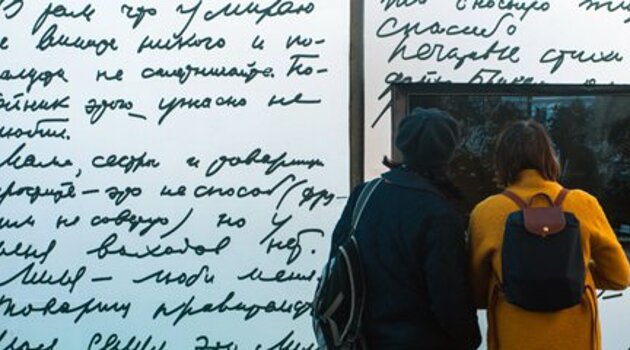 В том что умираю
е вините никого и по-
алуйста не сплетничайте. По-
ойник этого ужасно не
любил.
Мама, сестры и товарищи
простите – это не способ (дру-
им не советую) но у
меня выходов нет.
Лиля – люби меня.
Товарищ правительст
моя семья это Лиля
сносную
спасибо
Начатые стихи
дайте Брик